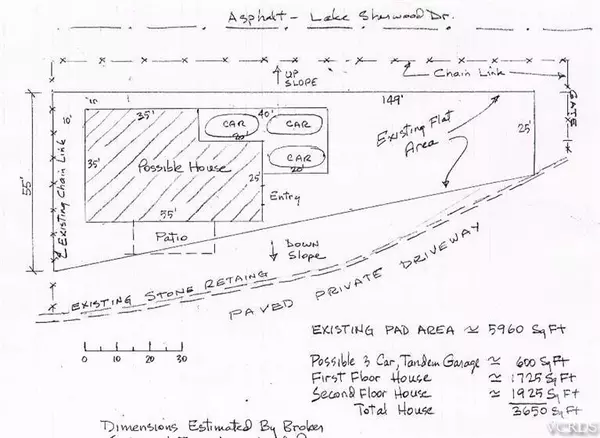 Asphalt - Lake Sherwood Dr.
UP
SLOPE
Chain Link
GATE
149'
10'
10'
35'
40'
CAR
CAR
20'
CAR
20'
Existing Flat
Area
25'
55'
Existing Chain Link
35'
Possible House
25'
Entry
55'
Patio
Down
Slope
EXISTING STONE RETAING
PAVED PRIVATE DRIVEWAY
0 10 20 30
EXISTING PAD AREA ≃ 5960 SqFt
Possible 3 Car, Tandem Garage ≃ 600 SqFt
First Floor House ≃ 1725 SqFt
Second Floor House ≃ 1925 SqFt
Total House 3650 SqFt
Dimensions Estimated By Broker
VCRDS